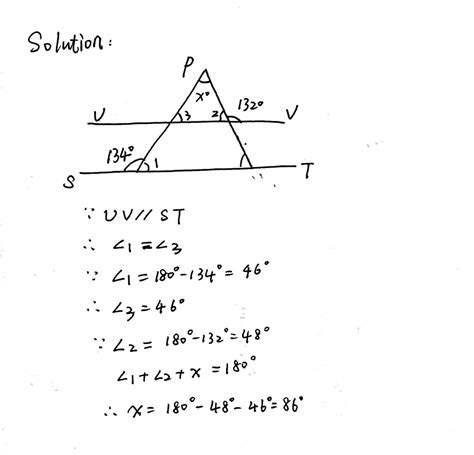 Solution:
P
x°
U 3 2 132° V
134° 1
S T
∵ UV // ST
∴ ∠1 = ∠3
∵ ∠1 = 180° - 134° = 46°
∴ ∠3 = 46°
∵ ∠2 = 180° - 132° = 48°
∠1 + ∠2 + x = 180°
∴ x = 180° - 48° - 46° = 86°